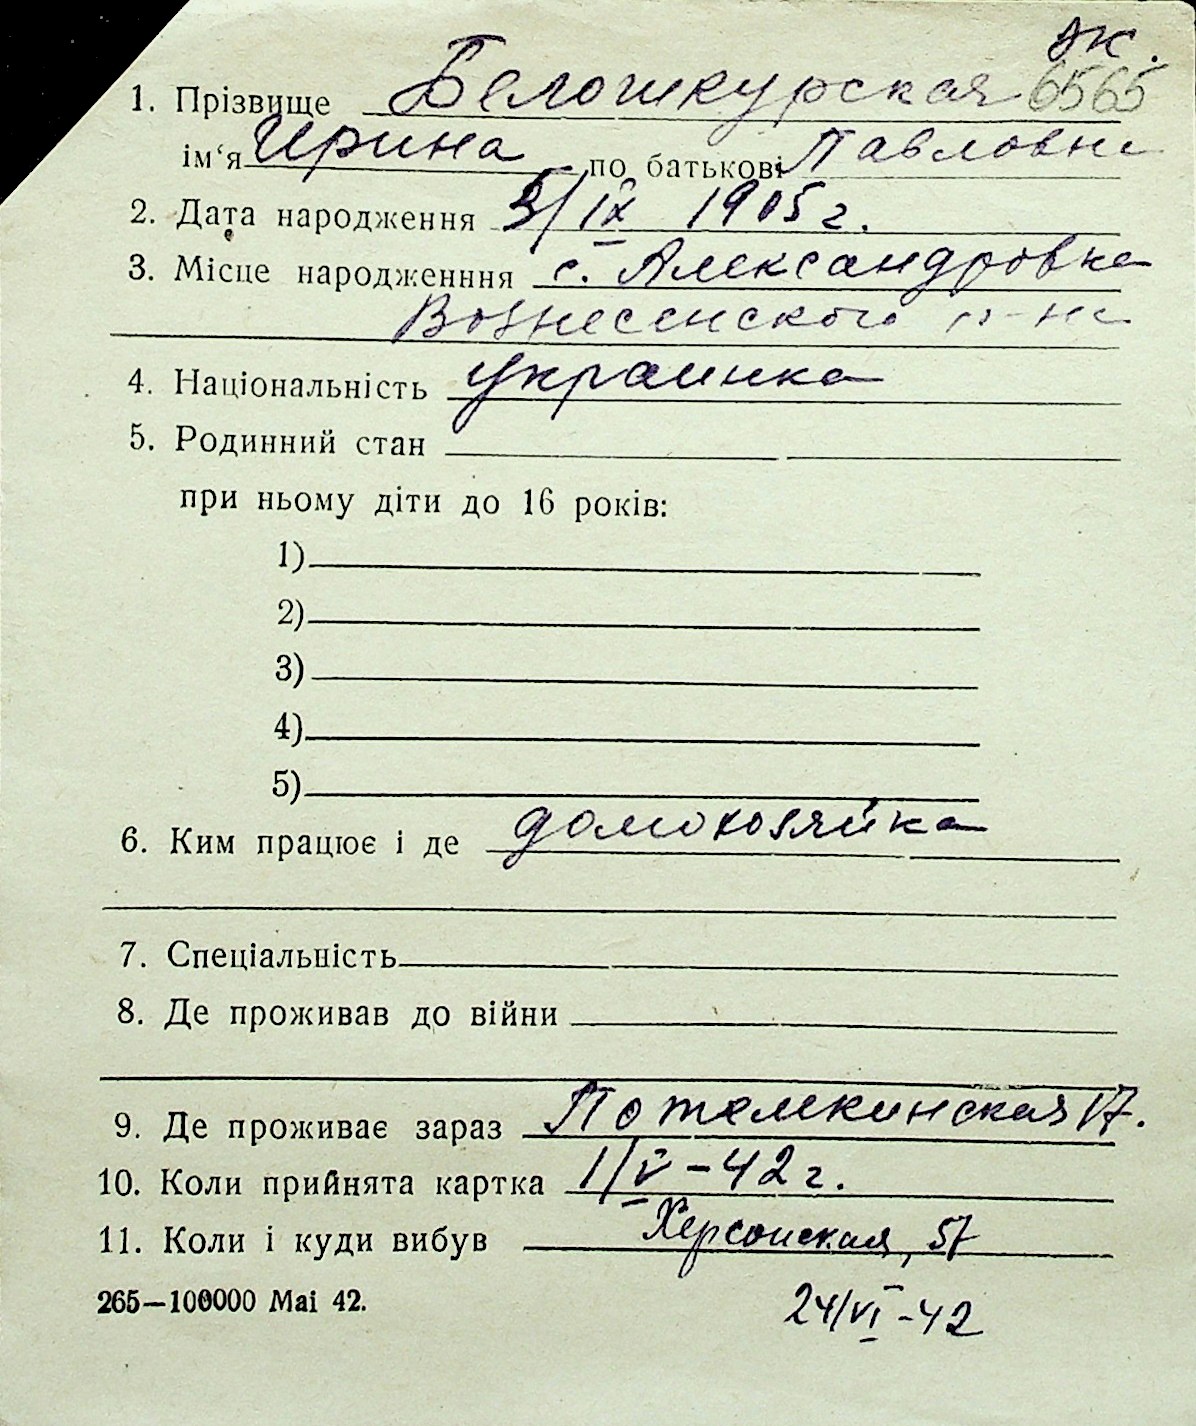 ж.
1. Прізвище Белошкурская 6565
ім‘я Ирина по батькові Павловна
2. Дата народження 5/IX 1905 г.
3. Місце народженння с. Александровка
Вознесенского р-на
4. Національність украинка
5. Родинний стан
при ньому діти до 16 років:
1)
2)
3)
4)
5)
6. Ким працює і де домохозяйка
7. Спеціальність
8. Де проживав до війни
9. Де проживає зараз Потемкинская 17.
10. Коли прийнята картка 1/V – 42 г.
11. Коли і куди вибув Херсонская, 57
265—100000 Mai 42.
24/VI - 42